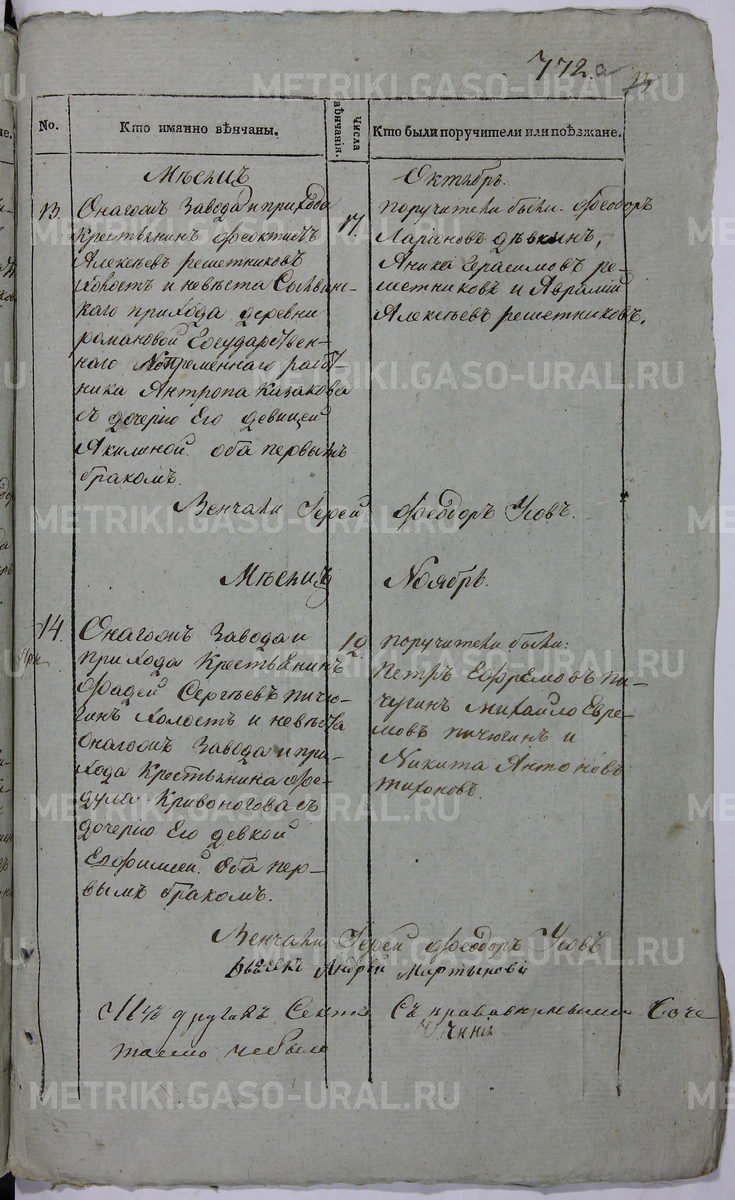 772.а
No.
Кто имянно вѣнчаны.
Числа вѣнчанія.
Кто были поручители или поѣзжане.
Мѣсяцъ Октябрь.
13. Онагожъ Завода и прихода
крестьянинъ Феоктистъ
Алексѣевъ решетниковъ
холостъ и невѣста Сылвин-
скаго прихода деревни
романовой Государствен-
наго Непременнаго работ-
ника Антропа Казакова
съ дочерію Его девицей
Акилиной оба первымъ
бракомъ.
17.
поручители были. Феодоръ
Ларионовъ дѣвкинъ,
Аника Герасимовъ ре-
шетниковъ и Авраамий
Алексѣевъ решетниковъ.
Венчали Іерей Феодоръ Усовъ.
Мѣсяцъ Ноябрь.
14. Онагожъ Завода и
прихода Крестьянинъ
Фадей Сергѣевъ пичю-
гинъ Холостъ и невѣста
Онагожъ Завода и при-
хода Крестьянина Фе-
дула Кривоногова съ
дочерію Его девкой
Евфимией. Оба пер-
вымъ бракомъ.
12.
поручители были:
Петръ Ефремовъ пи-
чугинъ Михайло Евре-
мовъ пичюгинъ и
Никита Антоновъ
тихоновъ.
Венчали Іерей Феодоръ Усовъ
Андрей Мартыновъ
другихъ Сектъ Съ
небыло
METRIKI.GASO-URAL.RU